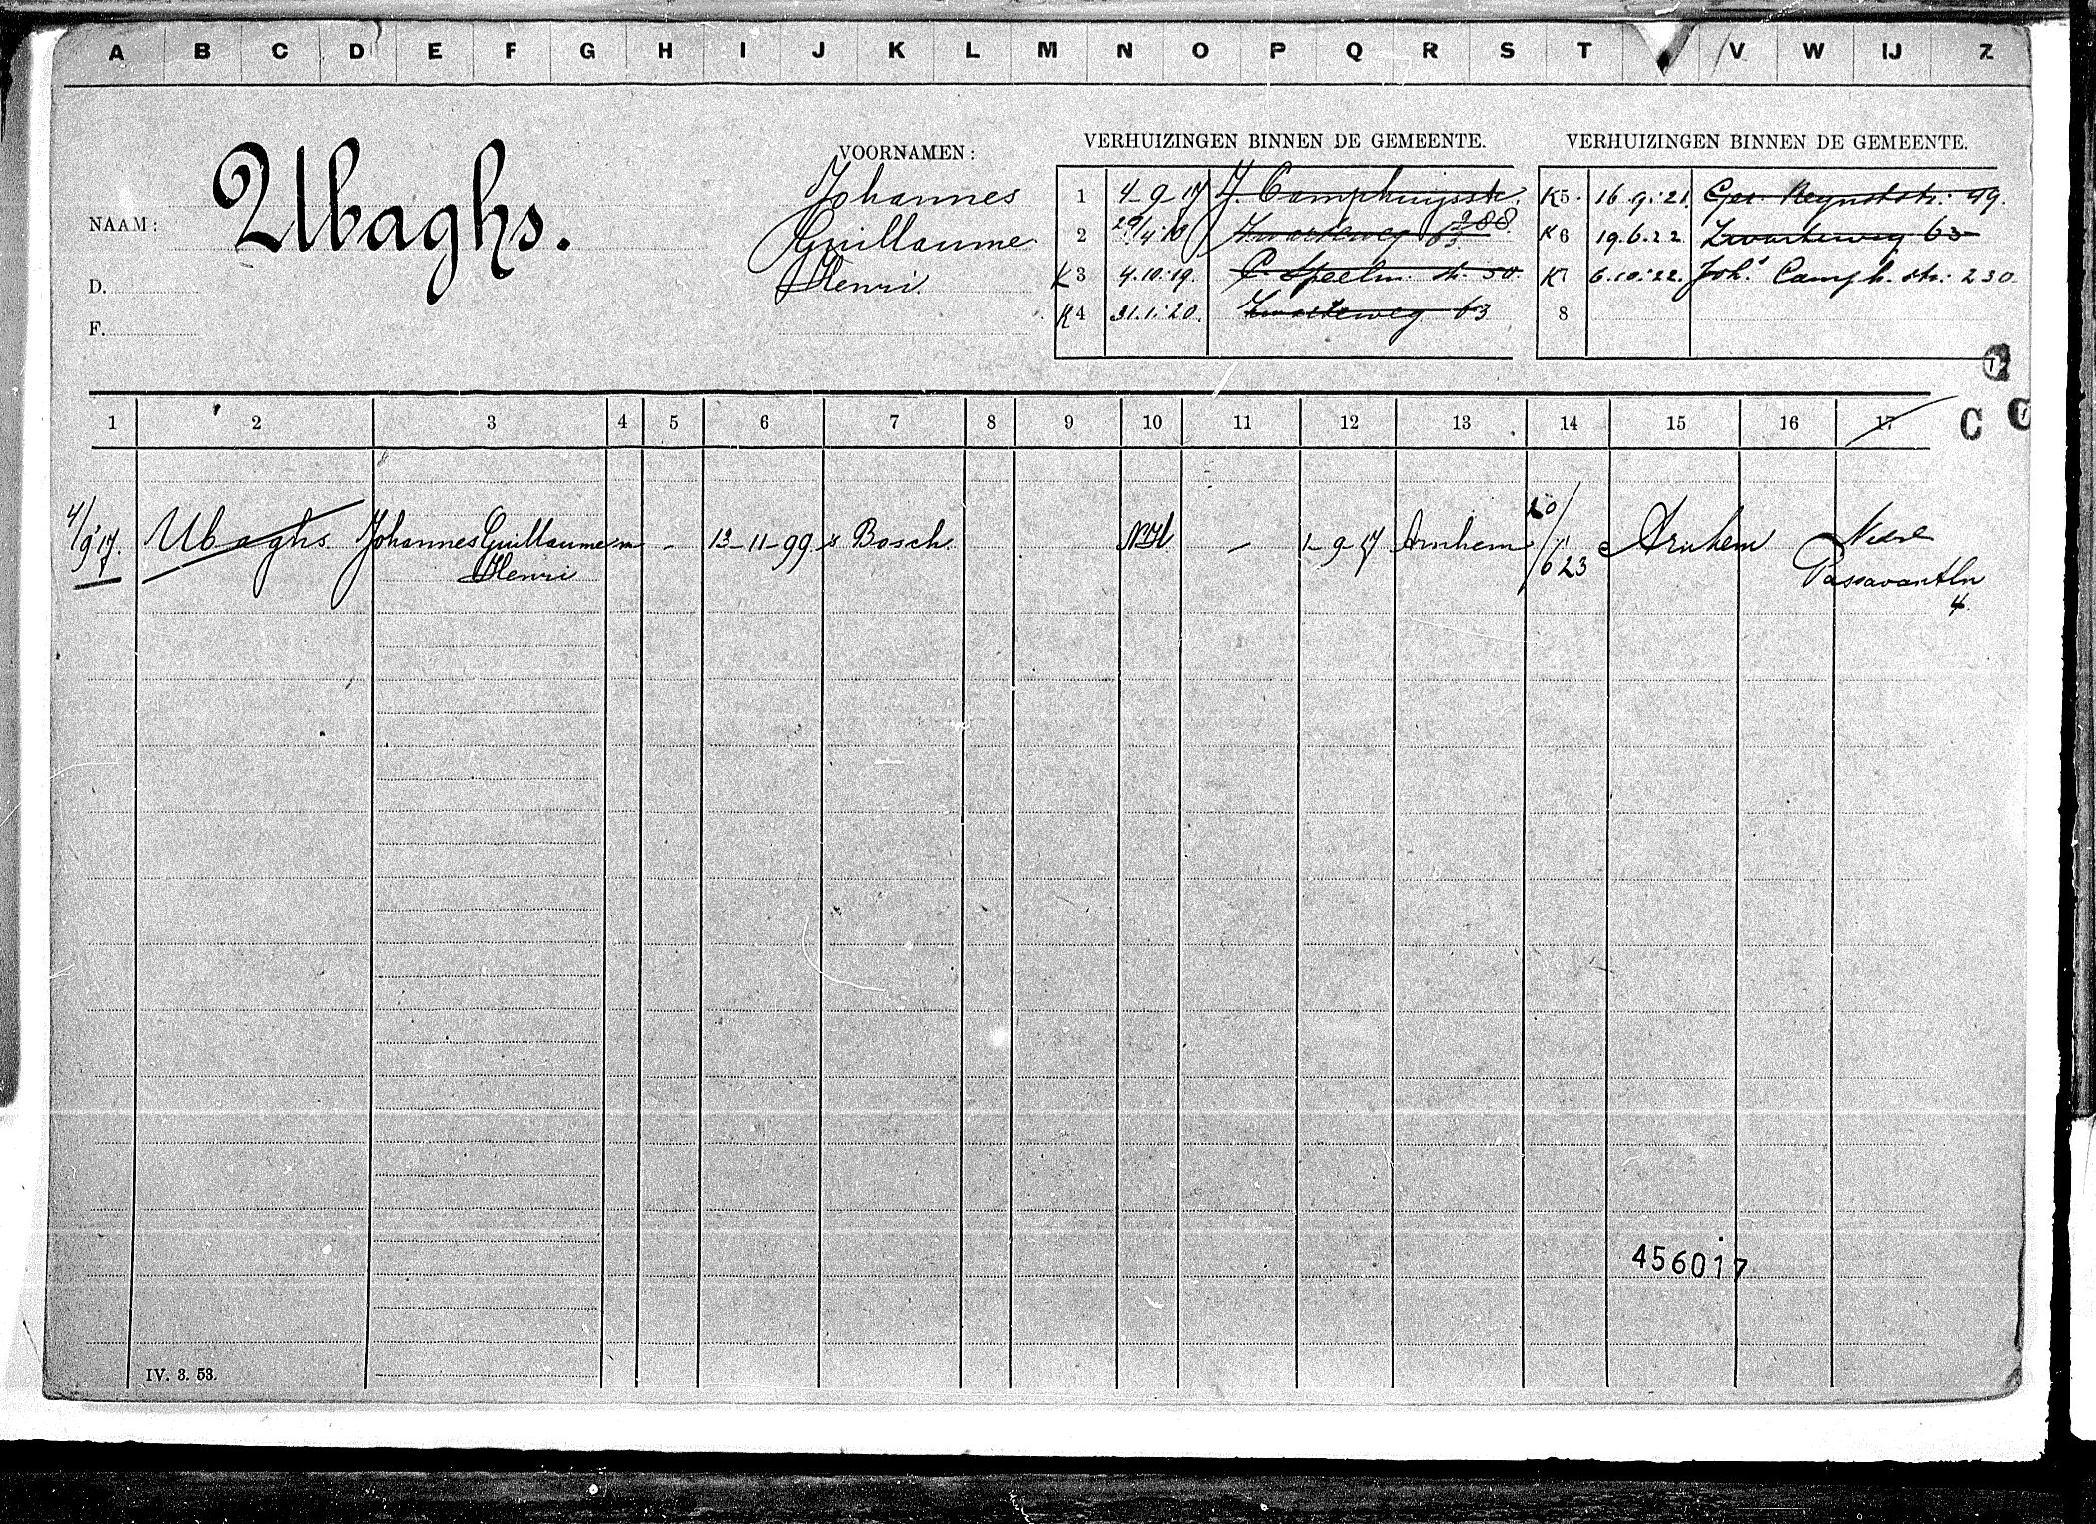 A B C D E F G H I J K L M N O P Q R S T V W IJ Z
NAAM: Ubaghs.
D.
F.
VOORNAMEN:
Johannes
Guillaume
Henri.
VERHUIZINGEN BINNEN DE GEMEENTE.
1 4-9-17 J. Camphuijsstr. 288
2 29/4 Zwarteweg 63
K3 4.10.19. C. Speelm. str. 50
K4 31.1.20. Zwarteweg 63
VERHUIZINGEN BINNEN DE GEMEENTE.
K5. 16.9.21. Ger. Reynststr. 49.
K6 19.6.22. Zwarteweg 63
K7 6.10.22. Joh.s Camph. str. 230.
8
1 2 3 4 5 6 7 8 9 10 11 12 13 14 15 16 17
C C
4/9 17. Ubaghs. Johannes Guillaume m - 13-11-99 s Bosch. NH - 1-9-17 Arnhem 20/6 23 Arnhem
Henri Passavantln
4.
456017
IV. 3. 53.